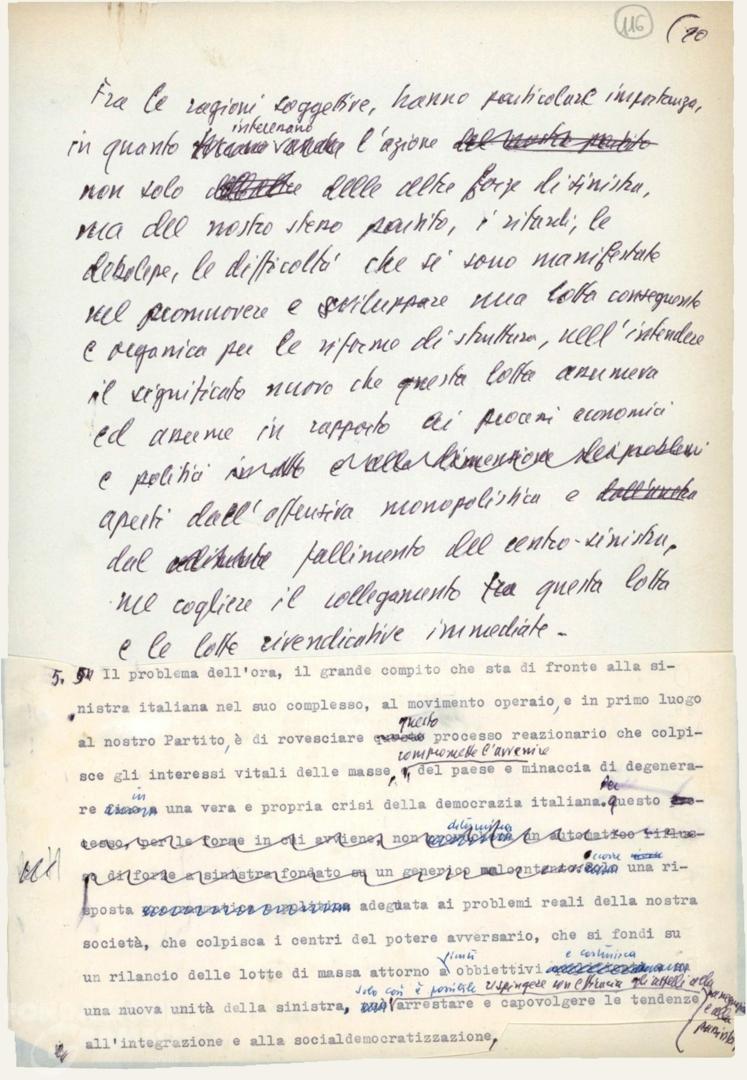 116
Fra le ragioni soggettive, hanno particolare importanza,
intervenano
in quanto l'azione del nostro partito
non solo delle altre forze di sinistra,
ma del nostro stesso partito, i ritardi, le
debolezze, le difficoltà che si sono manifestate
nel promuovere e sviluppare una lotta conseguente
e organica per le riforme di struttura, nell'intendere
il significato nuovo che questa lotta assumeva
ed assume in rapporto ai processi economici
e politici e alla dimensione dei problemi
aperti dall'offensiva monopolistica e
dal fallimento del centro-sinistra,
nel cogliere il collegamento tra questa lotta
e le lotte rivendicative immediate.
5. Il problema dell'ora, il grande compito che sta di fronte alla si-
nistra italiana nel suo complesso, al movimento operaio, e in primo luogo
questo
al nostro Partito, è di rovesciare questo processo reazionario che colpi-
compromette l'avvenire
sce gli interessi vitali delle masse, del paese e minaccia di degenera-
in
re a una vera e propria crisi della democrazia italiana. questo pro-
determina
cesso, per le forme in cui avviene, non un automatico riflus-
so di forze a sinistra fondato su un generico malcontento: una ri-
sposta adeguata ai problemi reali della nostra
società, che colpisca i centri del potere avversario, che si fondi su
e costruisca
un rilancio delle lotte di massa attorno a obbiettivi
solo così è possibile respingere con efficacia gli appelli alla
una nuova unità della sinistra, arrestare e capovolgere le tendenze
all'integrazione e alla socialdemocratizzazione,